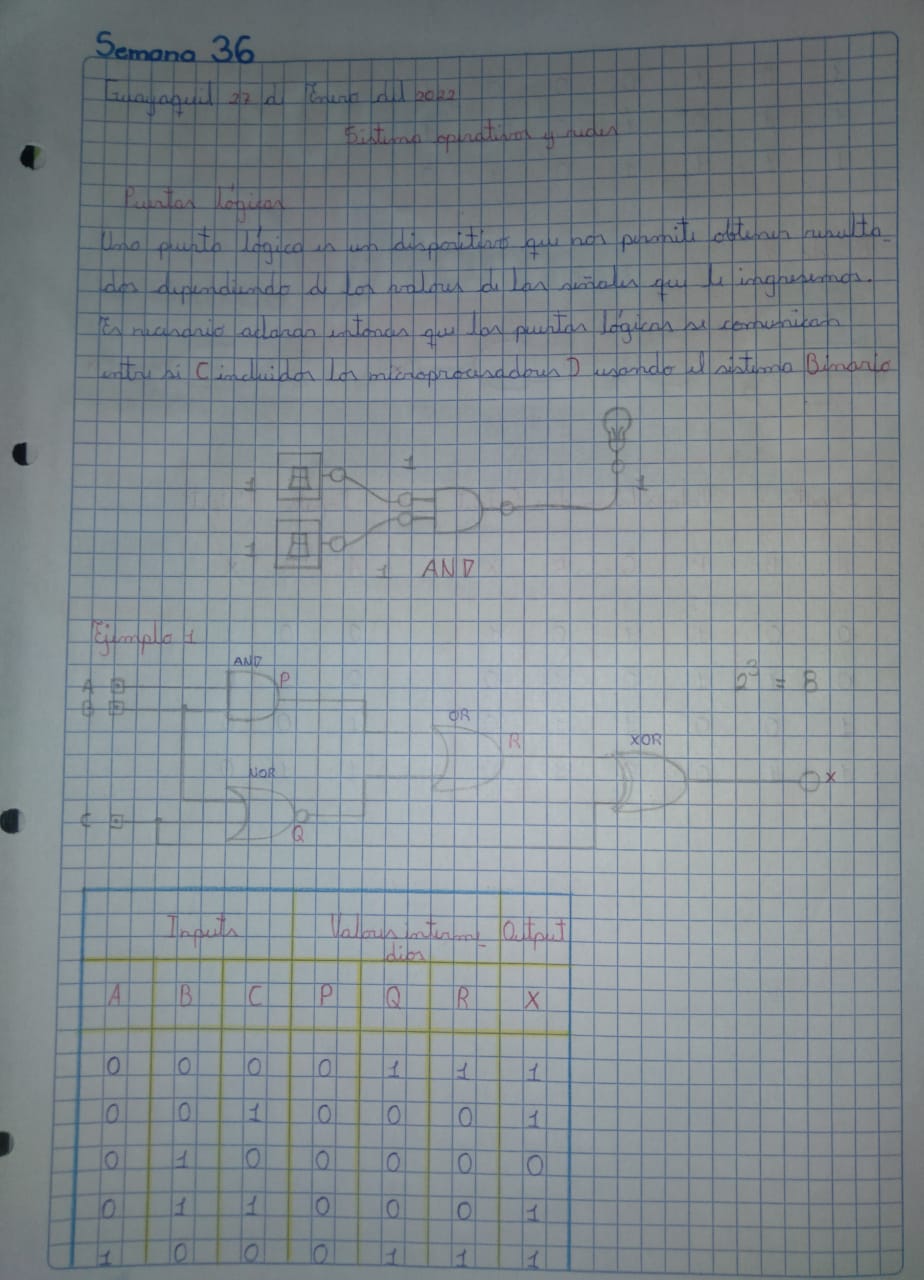 Semana 36
Guayaquil 27 de Enero del 2022
Sistema operativos y redes
Puertas lógicas
Una puerta lógica es un dispositivo que nos permite obtener resulta-
dos dependiendo de los valores de las señales que le ingresemos.
Es necesario aclarar entonces que las puertas lógicas se comunican
entre si (incluidos los microprocesadores) usando el sistema Binario
1
1
1
1
1
AND
Ejemplo 1
AND
A
P
2³ = 8
B
OR
R
XOR
NOR
X
C
Q
Inputs Valores interme- Output
dios
A B C P Q R X
0 0 0 0 1 1 1
0 0 1 0 0 0 1
0 1 0 0 0 0 0
0 1 1 0 0 0 1
1 0 0 0 1 1 1